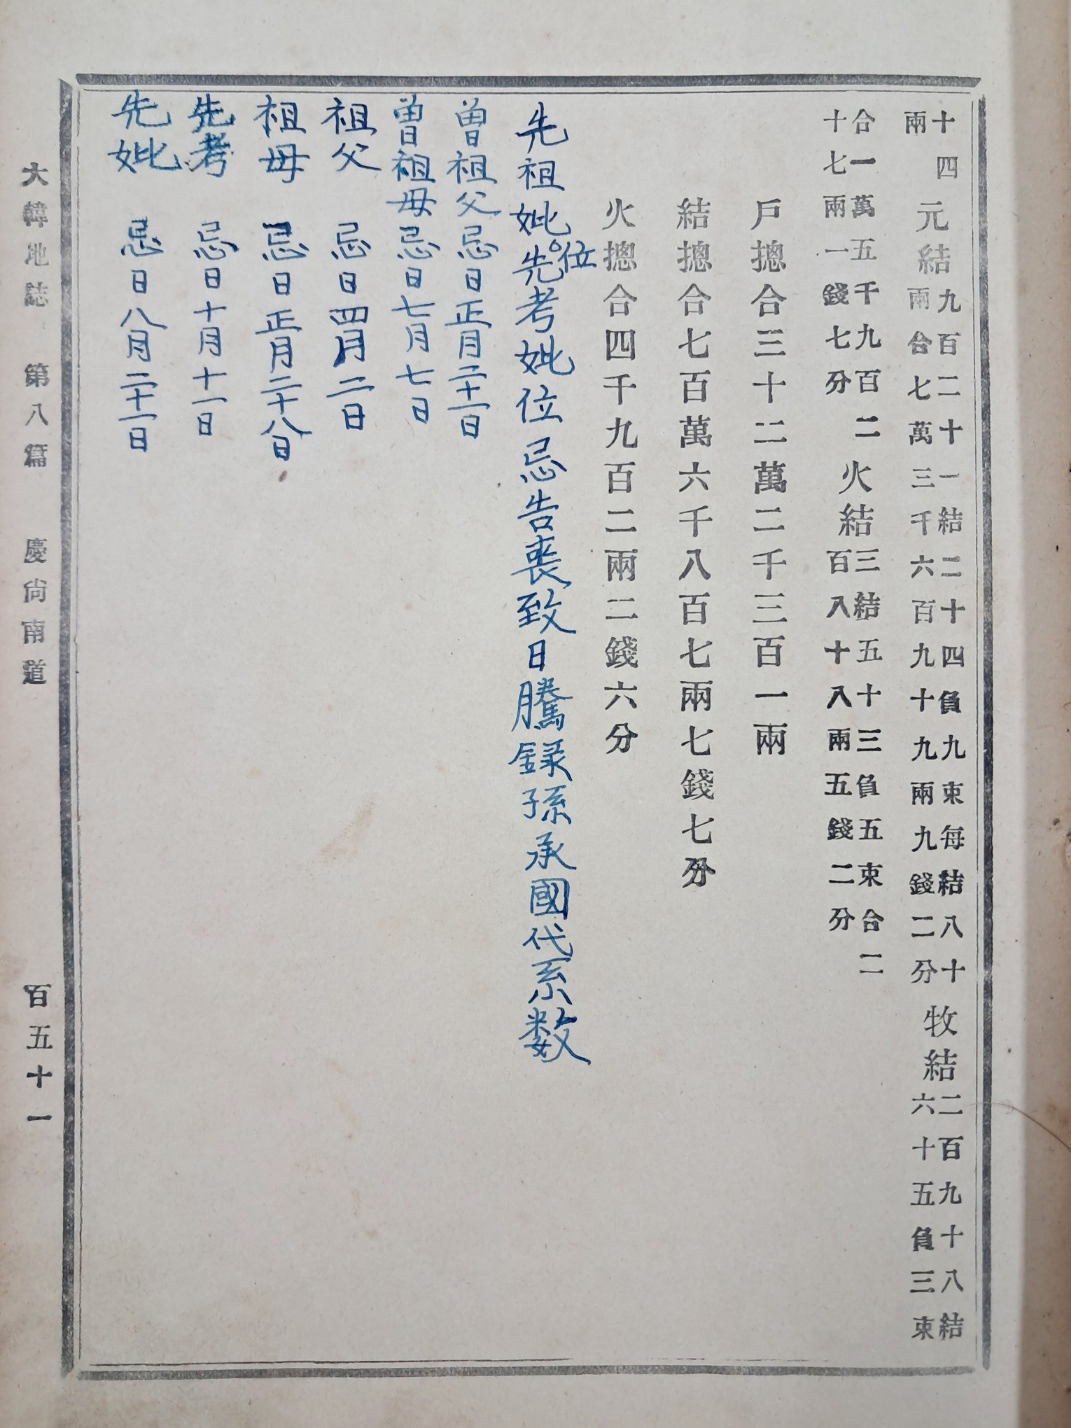 十四
兩
元結
九百二十一結二十四負九束每結八十
兩合七萬三千六百九十九兩九錢二分
牧結
二百九十八結
六十五負三束
合一萬五千九百二
十七兩一錢七分
火結
三結五十三負五束合二
百八十八兩五錢二分
戶摠合三十二萬二千三百一兩
結摠合七百萬六千八百七兩七錢七分
火摠合四千九百二兩二錢六分
先祖妣位先考妣位忌告喪致日騰錄孫承國代系数
曽祖父忌日正月二十一日
曽祖母忌日七月七日
祖父 忌日四月二日
祖母 忌日正月二十八日
先考 忌日十月十一日
先妣 忌日八月二十一日
大韓地誌 第八篇 慶尙南道 百五十一